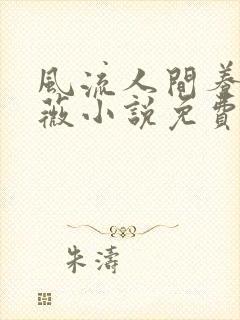 風流人間養
薇小説免費
朱濤